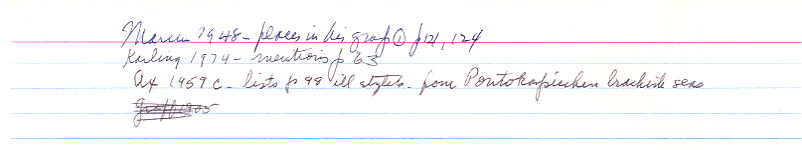 Marcus 1948 - places in his group ① p 121, 124
Karling 1974 - mentions p 63
Ax 1959 c - lists p 98 ill stylets - from Pontokaspischen brackish seas
Graff 1905